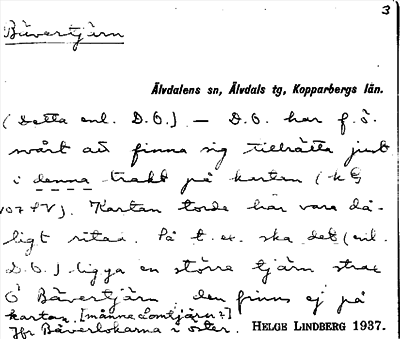 3
Bävertjärn
Älvdalens sn, Älvdals tg, Kopparbergs län.
(Detta enl. D.O.) — D.O. har f.ö.
svårt att finna sig tillrätta just
i denna trakt på kartan (KG
107 SV). Kartan torde här vara då-
ligt ritad. Så t. ex. ska det (enl.
D.O.) ligga en större tjärn strax
Ö Bävertjärn, den finns ej på
kartan. [månne Lomtjärn?]
Jfr Bäverlokarna i öster. HELGE LINDBERG 1937.